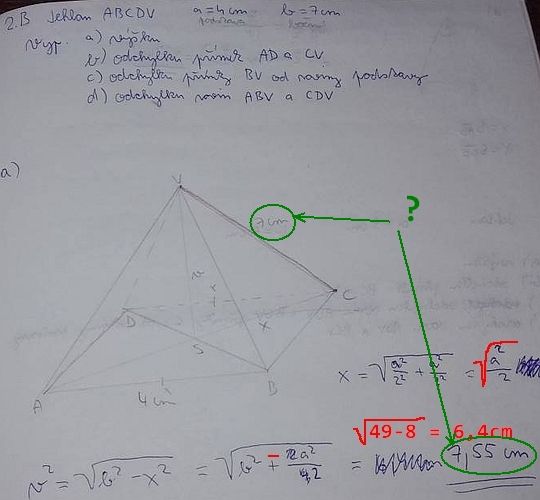 2.B Jehlan ABCDV a = 4cm b = 7cm
podstava boční
Vyp. a) výšku
b) odchylku přímek AD a CV
c) odchylku přímky BV od roviny podstavy
d) odchylku rovin ABV a CDV
a)
V
?
7cm
v
x
D
C
x
S
B
A
4cm
x = √(a²/2² + a²/2²) = √(a²/2)
√49-8 = 6,4cm
v² = √(b² - x²) = √(b² - 2a²/4) = 7,55 cm